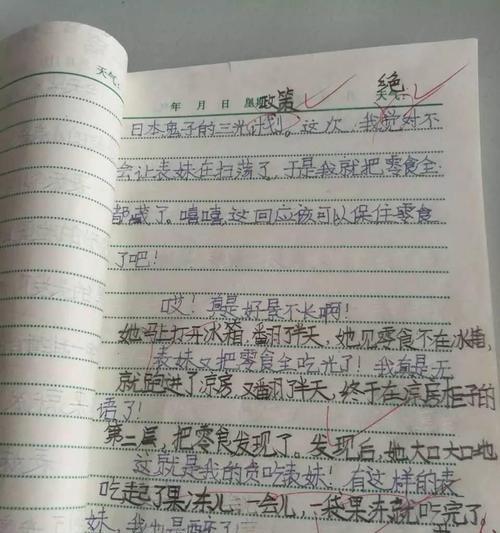 天气:
年 月 日 星期 政策 天气: 绝
日本鬼子的三光计划。这次,我觉对不
会让表妹在扫荡了,于是我就把零食全
部藏了。嘻嘻这回应该可以保住零食
了吧!
哎!真是好景不长啊!
她马上打开冰箱,翻了半天,她见零食不在冰箱,
表妹又把零食全吃光了!我真是无
就跑进了凉房又翻了半天,终于在凉房柜子的
语了!
第二层,把零食发现了。发现后,她大口大口地
这就是我的贪吃表妹!有这样的表
吃起了果冻儿,一会儿,一袋果冻就吃完了。
妹,我也是醉了!